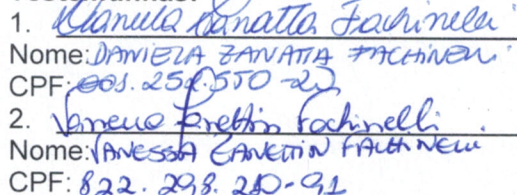 1. Daniela Zanatta Fachinelli
Nome: DANIELA ZANATTA FACHINELLI
CPF: 001.25 .550-2
2. Vanessa Zanettin Fachinelli
Nome: VANESSA ZANETTIN FACHINELLI
CPF: 822.298.210-91